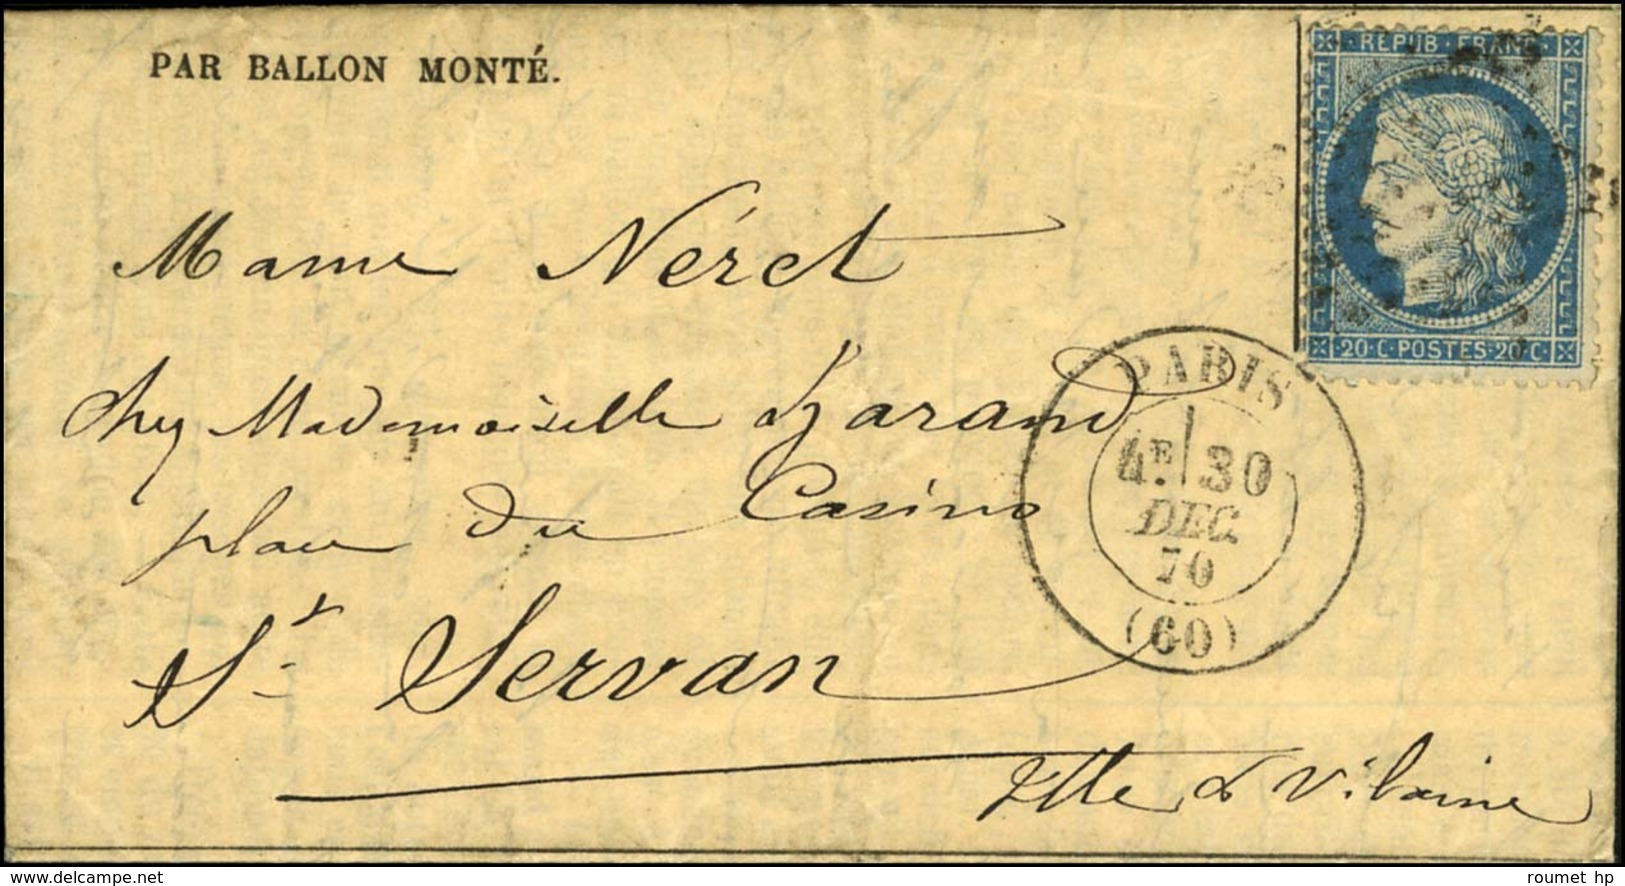 PAR BALLON MONTÉ.
REPUB. FRANC.
20·C·POSTES·20·C
Mame Néret
chez Mademoiselle
place du Casino
St Servan
Ille & Vilaine
PARIS
4E. 30
DEC.
70
(60)
delcampe.net
roumet hp